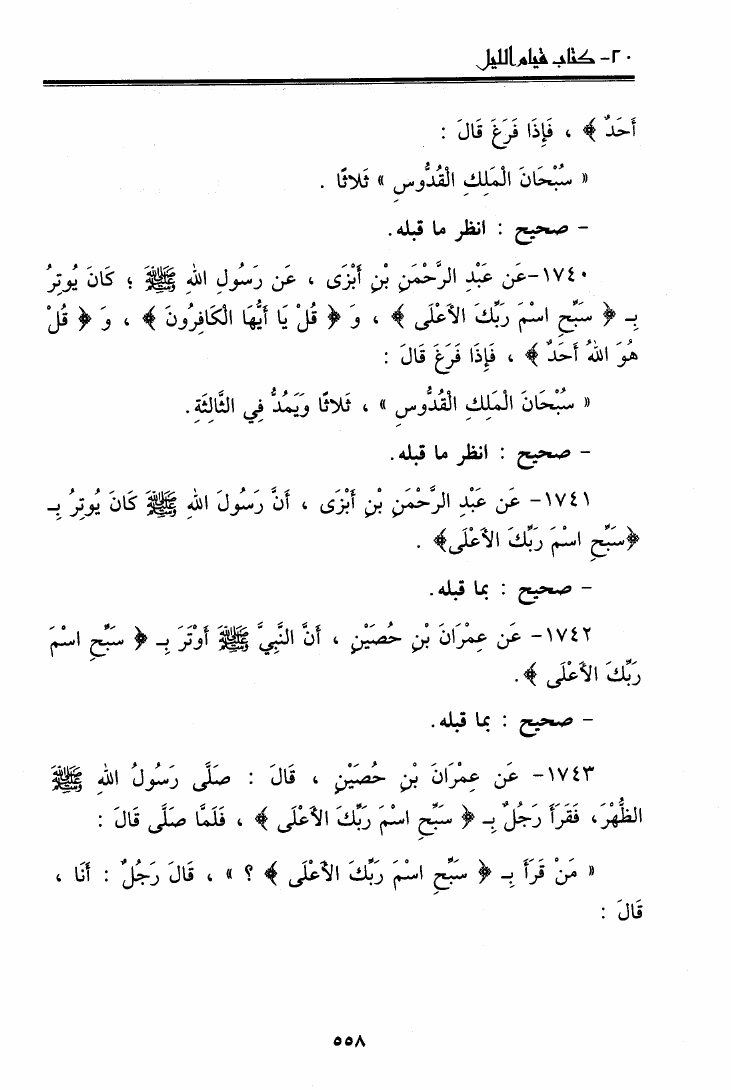 ٢٠- كتاب قيام الليل
أَحَدٌ ﴾ ، فَإِذَا فَرَغَ قَالَ :
« سُبْحَانَ الْمَلِكِ الْقُدُّوسِ » ثَلاثًا .
- صحيح : انظر ما قبله.
١٧٤٠-عَن عَبْدِ الرَّحْمَنِ بْنِ أَبْزَى ، عَن رَسُولِ اللهِ ﷺ ؛ كَانَ يُوتِرُ
بِـ ﴿ سَبِّحِ اسْمَ رَبِّكَ الأَعْلَى ﴾ ، وَ ﴿ قُلْ يَا أَيُّهَا الْكَافِرُونَ ﴾ ، وَ ﴿ قُلْ
هُوَ اللهُ أَحَدٌ ﴾ ، فَإِذَا فَرَغَ قَالَ :
« سُبْحَانَ الْمَلِكِ الْقُدُّوسِ » ، ثَلاثًا وَيَمُدُّ فِي الثَّالِثَةِ.
- صحيح : انظر ما قبله.
١٧٤١- عَن عَبْدِ الرَّحْمَنِ بْنِ أَبْزَى ، أَنَّ رَسُولَ اللهِ ﷺ كَانَ يُوتِرُ بِـ
﴿سَبِّحِ اسْمَ رَبِّكَ الأَعْلَى﴾ .
- صحيح : بما قبله.
١٧٤٢- عَن عِمْرَانَ بْنِ حُصَيْنٍ ، أَنَّ النَّبِيَّ ﷺ أَوْتَرَ بِـ ﴿ سَبِّحِ اسْمَ
رَبِّكَ الأَعْلَى ﴾ .
- صحيح : بما قبله.
١٧٤٣- عَن عِمْرَانَ بْنِ حُصَيْنٍ ، قَالَ : صَلَّى رَسُولُ اللهِ ﷺ
الظُّهْرَ، فَقَرَأَ رَجُلٌ بِـ ﴿ سَبِّحِ اسْمَ رَبِّكَ الأَعْلَى ﴾ ، فَلَمَّا صَلَّى قَالَ :
« مَنْ قَرَأَ بِـ ﴿ سَبِّحِ اسْمَ رَبِّكَ الأَعْلَى ﴾ ؟ » ، قَالَ رَجُلٌ : أَنَا ،
قَالَ :
٥٥٨